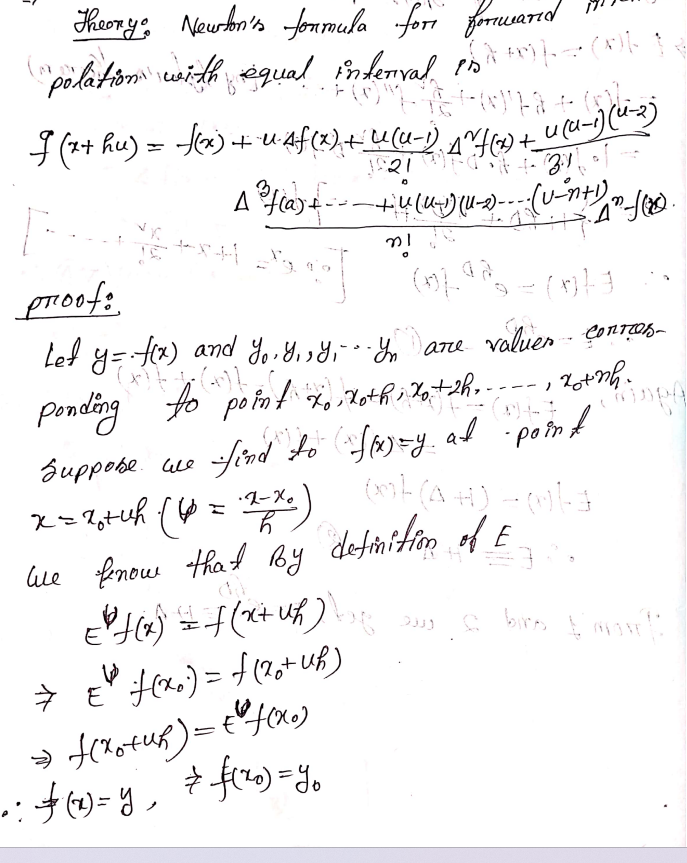 Theory: Newton's formula for forward inter
polation with equal interval is
f(x+hu) = f(x) + uΔf(x) + u(u-1)/2! Δ²f(x) + u(u-1)(u-2)/3!
Δ³f(a) + ---- + u(u-1)(u-2)----(u-n+1)/n! Δⁿf(x).
proof:
Let y=f(x) and y₀, y₁, y₁ --- yₙ are values corres-
ponding to point x₀, x₀+h, x₀+2h, ----, x₀+nh.
Suppose we find to f(x)=y at point
x = x₀+uh (u = x-x₀/h)
we know that By definition of E
Eᵘf(x) = f(x+uh)
⇒ Eᵘ f(x₀) = f(x₀+uh)
⇒ f(x₀+uh) = Eᵘf(x₀)
∴ f(x) = y, ⇒ f(x₀) = y₀